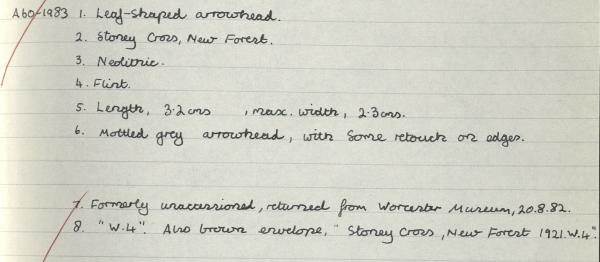 A60-1983 1. Leaf-shaped arrowhead.
2. Stoney Cross, New Forest.
3. Neolithic.
4. Flint.
5. Length, 3.2cms , max. width, 2.3cms.
6. Mottled grey arrowhead, with some retouch on edges.
7. Formerly unaccessioned, returned from Worcester Museum, 20.8.82.
8. "W.4". Also brown envelope, "Stoney Cross, New Forest 1921.W.4".